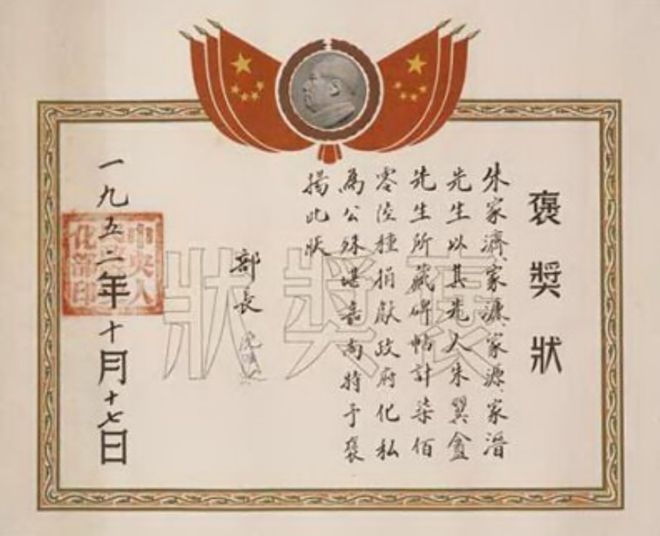 褒獎狀
朱家濟、家濂、家源、家溍
先生以其先人朱翼盦
先生所藏碑帖計柒佰
零陸種捐獻政府化私
為公殊堪嘉尚特予褒
揚此狀
部長
一九五二年十月十七日
褒獎狀
中央人
化部印